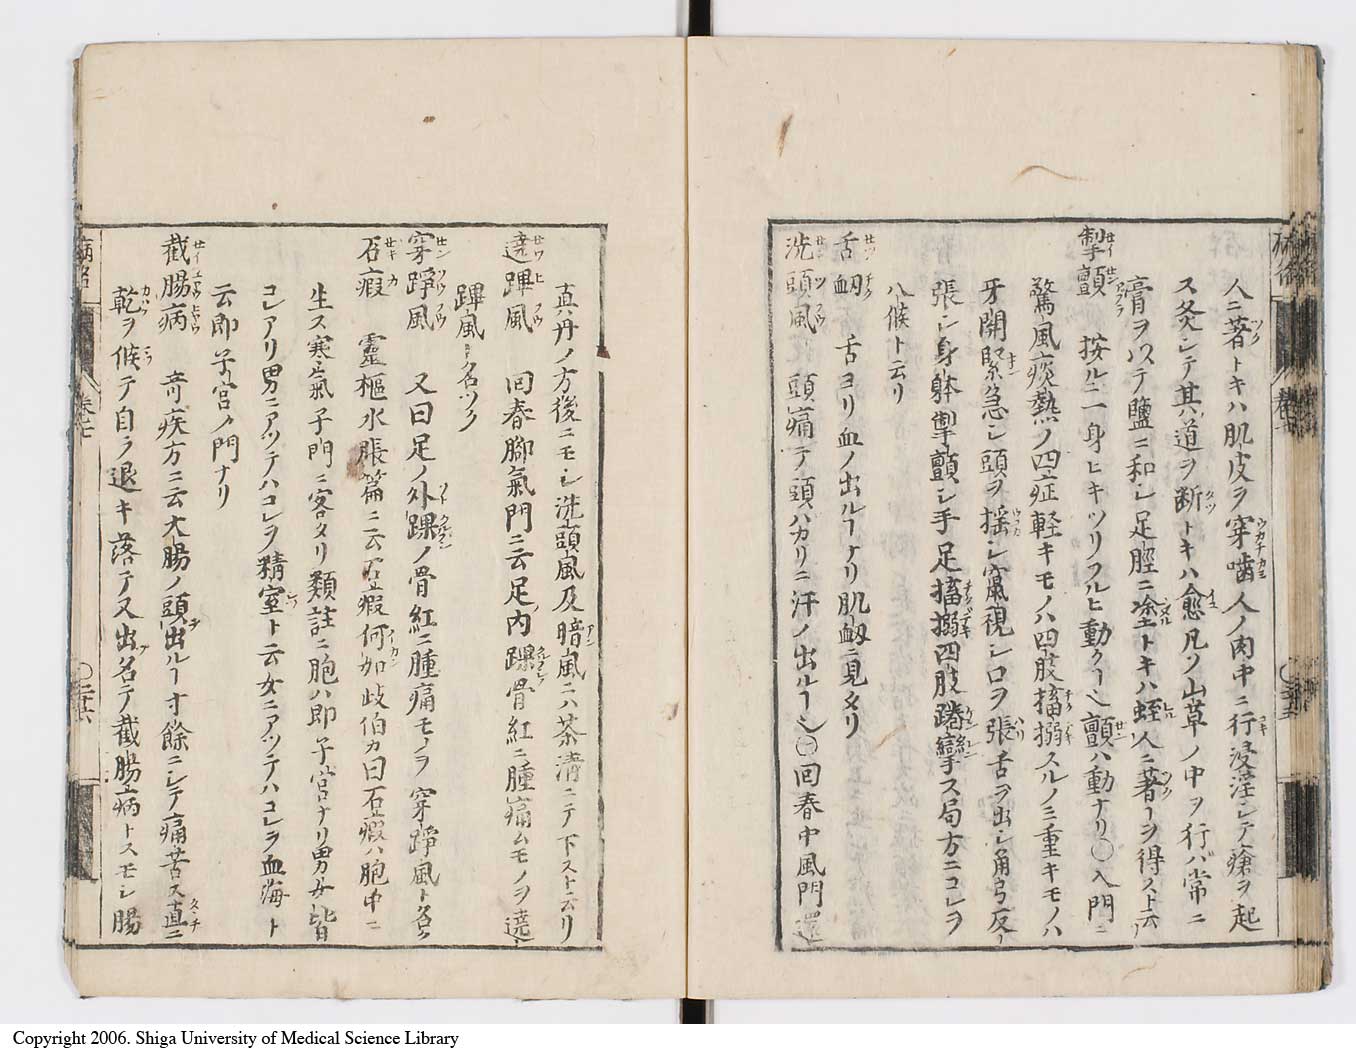 人ニ著トキハ肌皮ヲ穿嚙人ノ肉中ニ行浸淫シテ瘡ヲ起
ス灸シテ其道ヲ断トキハ愈凡ソ山草ノ中ヲ行バ常ニ
膏ヲ以テ鹽ニ和シ足脛ニ塗トキハ蛭人ニ著ーヲ得スト云
掣顫 按ルニ一身ヒキツリフルヒ動クー也顫ハ動ナリ〇入門ニ
驚風痰熱ノ四症軽キモノハ四肢搐搦スルノミ重キモノハ
牙關緊急シ頭ヲ揺シ竄視シ口ヲ張舌ヲ出シ角弓反
張シ身躰掣顫シ手足搐搦四肢踡攣ス局方ニコレヲ
八候ト云リ
舌衂 舌ヨリ血ノ出ルーナリ肌衂ニ見タリ
洗頭風 頭痛テ頭ハカリニ汗ノ出ルー也〇回春中風門還
真丹ノ方後ニモシ洗頭風及暗風ニハ茶清ニテ下スト云リ
遶踝風 回春脚氣門ニ云足内踝骨紅ニ腫痛ムモノヲ遶
踝風ト名ツク
穿踭風 又曰足ノ外踝ノ骨紅ニ腫痛モノヲ穿踭風ト名ク
石瘕 靈樞水脹篇ニ云石瘕何如歧伯カ曰石瘕ハ胞中ニ
生ス寒氣子門ニ客タリ類註ニ胞ハ即子宮ナリ男女皆
コレアリ男ニアツテハコレヲ精室ト云女ニアツテハコレヲ血海ト
云即子宮ノ門ナリ
截腸病 竒疾方ニ云大腸ノ頭出ルー寸餘ニシテ痛苦ス直ニ
乾ヲ候テ自ラ退キ落テ又出名テ截腸病トスモシ腸
病名
巻之七
〇二十六
Copyright 2006. Shiga University of Medical Science Library